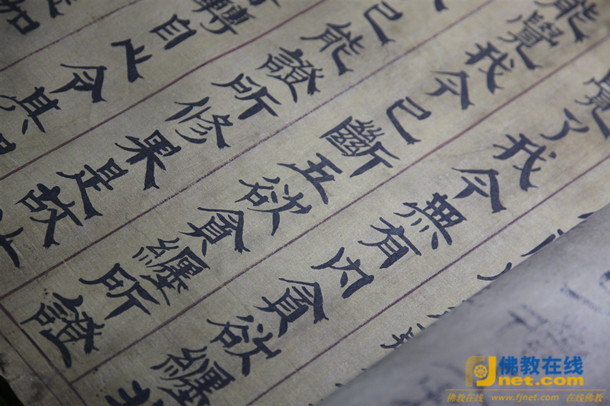 覺了我今無有内貪欲纏
能覺我今已斷五欲貪纏所證
已能證所修果是故
轉自止令其
如
佛教在线
Fjnet.com
佛教在线 www.fjnet.com 在线佛教